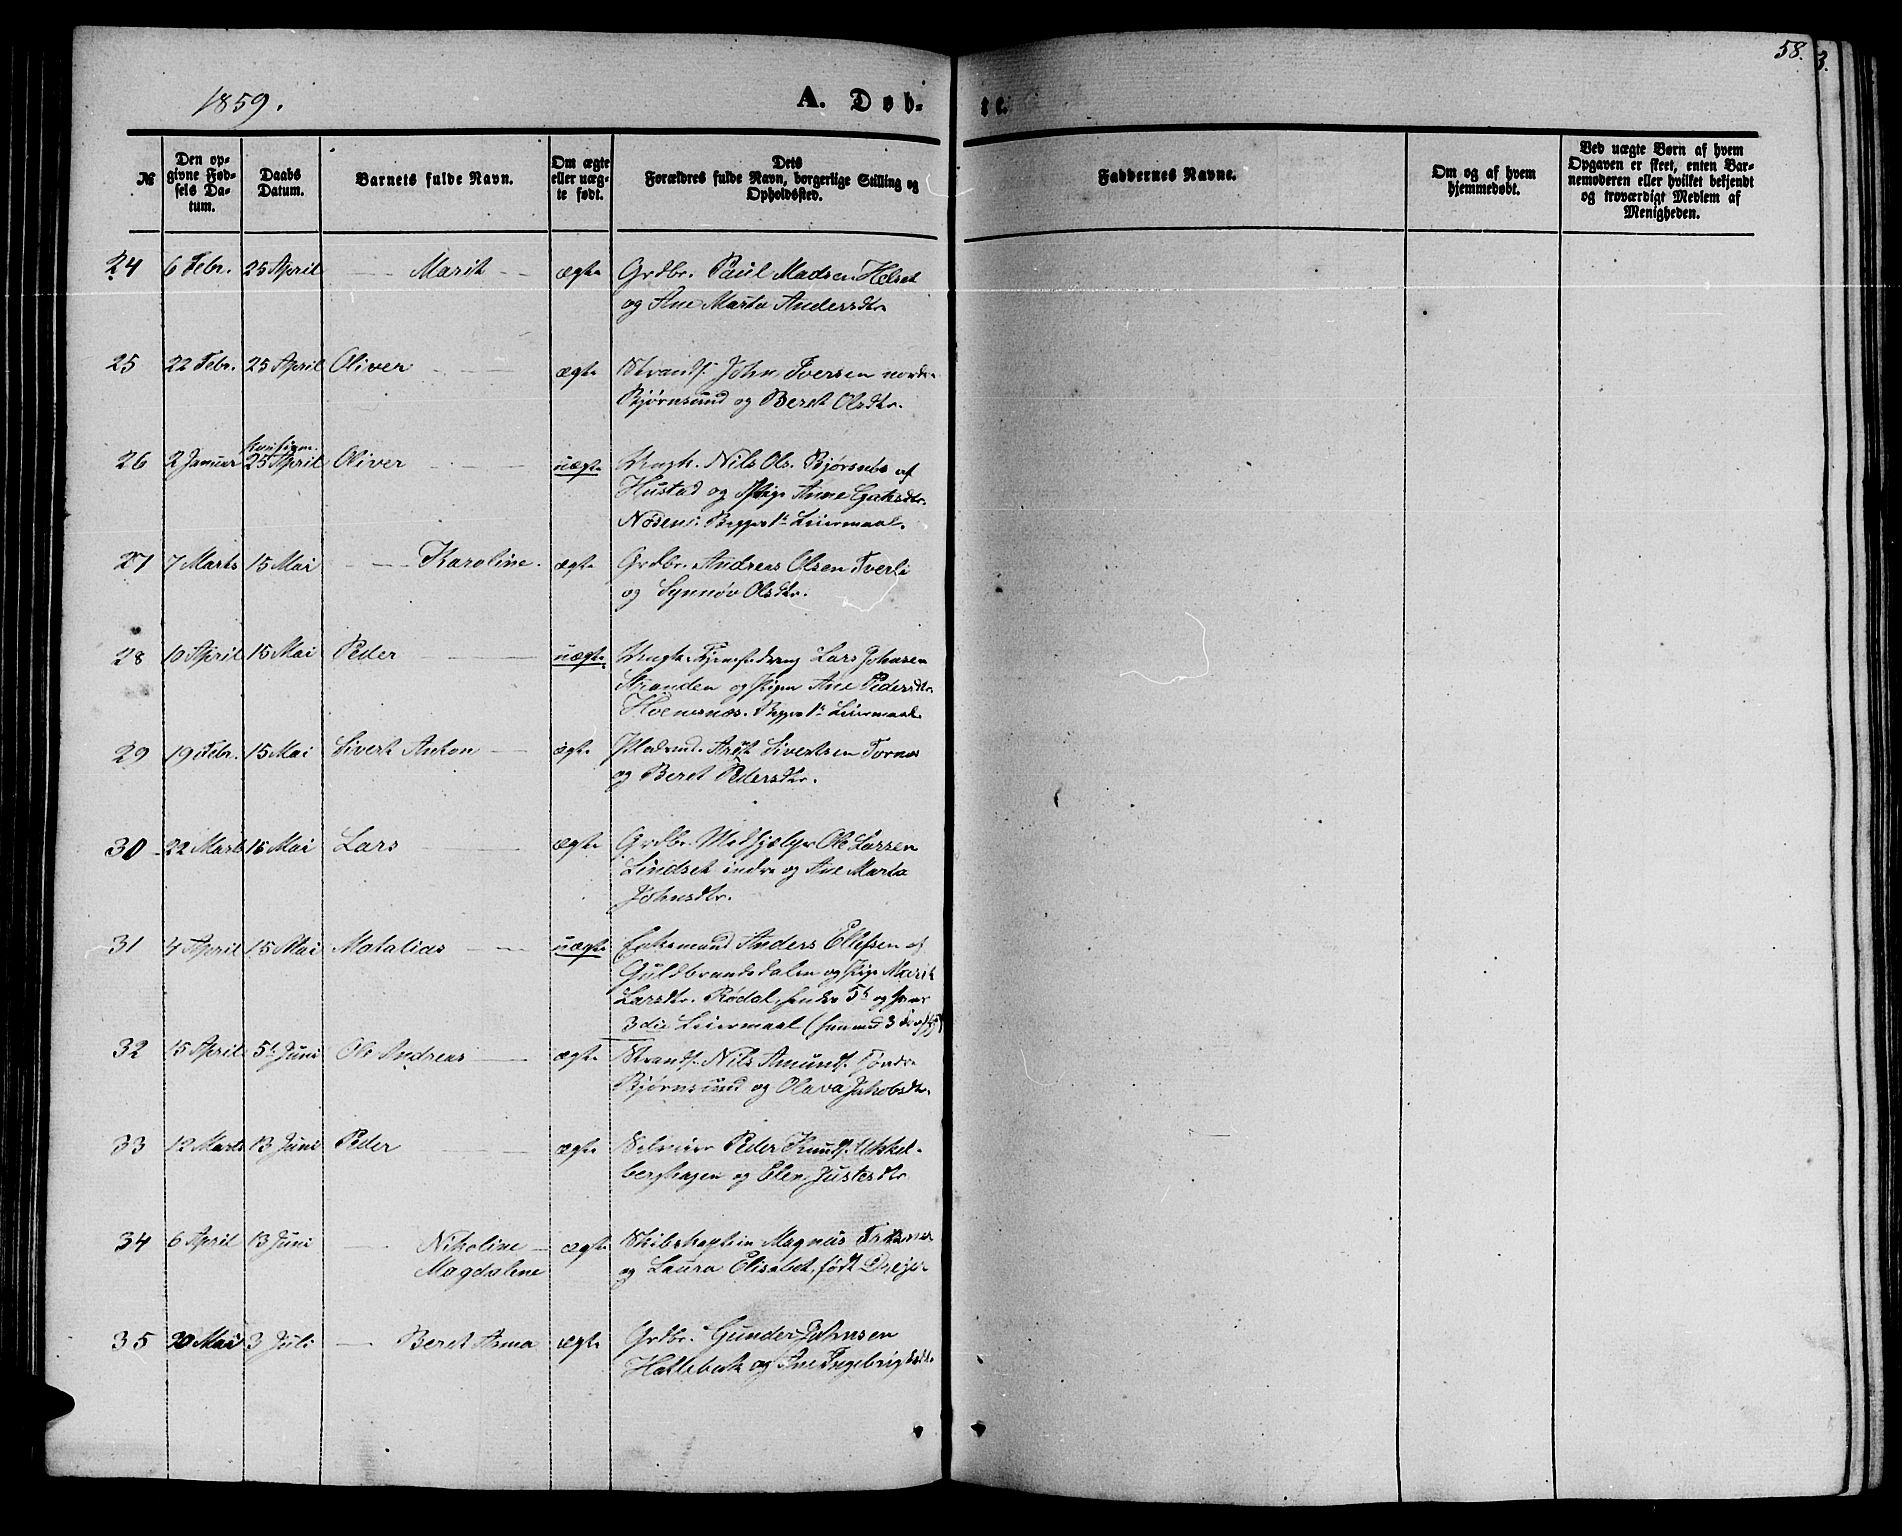 58.
3.
1859.
A. Døb- te.
№
Den op-
givne Fød-
sels Da-
tum.
Daabs
Datum.
Barnets fulde Navn.
Om ægte
eller uæg-
te født.
Dets
Forældres fulde Navn, borgerlige Stilling og
Opholdssted.
Faddernes Navne.
Om og af hvem
hjemmedøbt.
Ved uægte Børn af hvem
Opgaven er skeet, enten Bar-
nemoderen eller hvilket bekjendt
og troværdigt Medlem af
Menigheden.
24 6 Febr. 25 April Marit ægte Grdbr. Paul Madsen Helset
og Ane Marta Andersdtr
25 22 Febr. 25 April Oliver ægte Strands. John Iversen nordre
Bjørnsund og Beret Olsdtr.
26 2 Januar 25 April Oliver uægte Ungk. Nils Ols. Bjørsnes af
Hustad og Pige Anne
Leiermaal.
27 7 Marts 15 Mai Karoline. ægte Grdbr. Andreas Olsen Tverli
og Synnøv Olsdtr.
28 10 April 15 Mai Peder uægte Ungk. Lars Johnsen
Stranden og Pigen Ane Pedersdtr
Leiermaal.
29 19 Febr. 15 Mai Sivert Anton ægte Sivertsen Tornes
og Beret Pedersdtr.
30 22 Marts 16 Mai Lars ægte Grdbr. Medhjælper Ole Larsen
Lindset indre og Ane Marta
Johnsdtr.
31 4 April 15 Mai Matalias uægte Enkemand Anders Ellefsen af
Guldbrandsdalen og Pige Marit
Larsdtr. Rødal, hendes 5te og hans
3die Leiermaal
32 15 April 5te Juni Ole Andreas ægte Strands. Nils Amunds.
Bjørnsund og Olava Jakobsdtr.
33 12 Marts 13 Juni Peder ægte Selveier Peder Knuds.
og Elen Justesdtr
34 6 April 13 Juni Nikoline ægte Skibskaptein Magnus
Magdalene og Laura Elisabet, født Dreyer
35 30 Mai 3 Juli Beret Anna ægte Grdbr. Gunder Johnsen
og Ane Ingebrigtsdtr